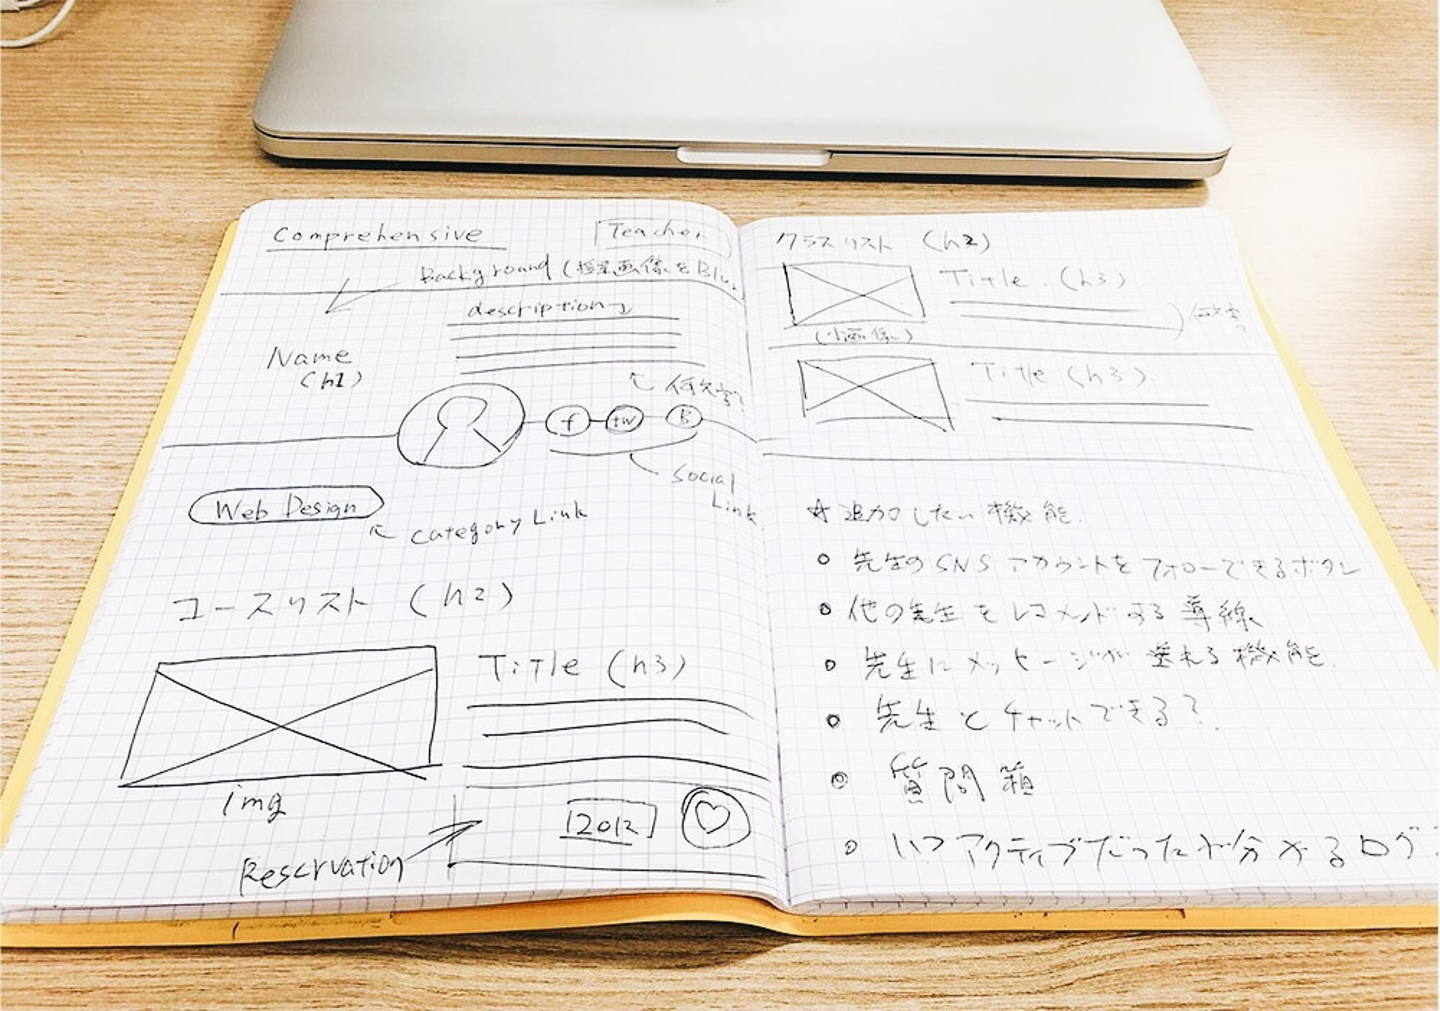 Comprehensive
Teacher
Background (授業画像をBlur
description
Name
(h1)
何文字?
f
tw
B
Social
Link
Web Design
Category Link
コースリスト (h2)
Title (h3)
img
Reservation
クラスリスト (h2)
Title (h3)
何文字?
Title (h3)
☆追加したい機能
○ 先生のSNSアカウントをフォローできるボタン
○ 他の先生をレコメンドする導線
○ 先生にメッセージが送れる機能
○ 先生とチャットできる?
○ 質問箱
○ いつアクティブだったか分かるログ